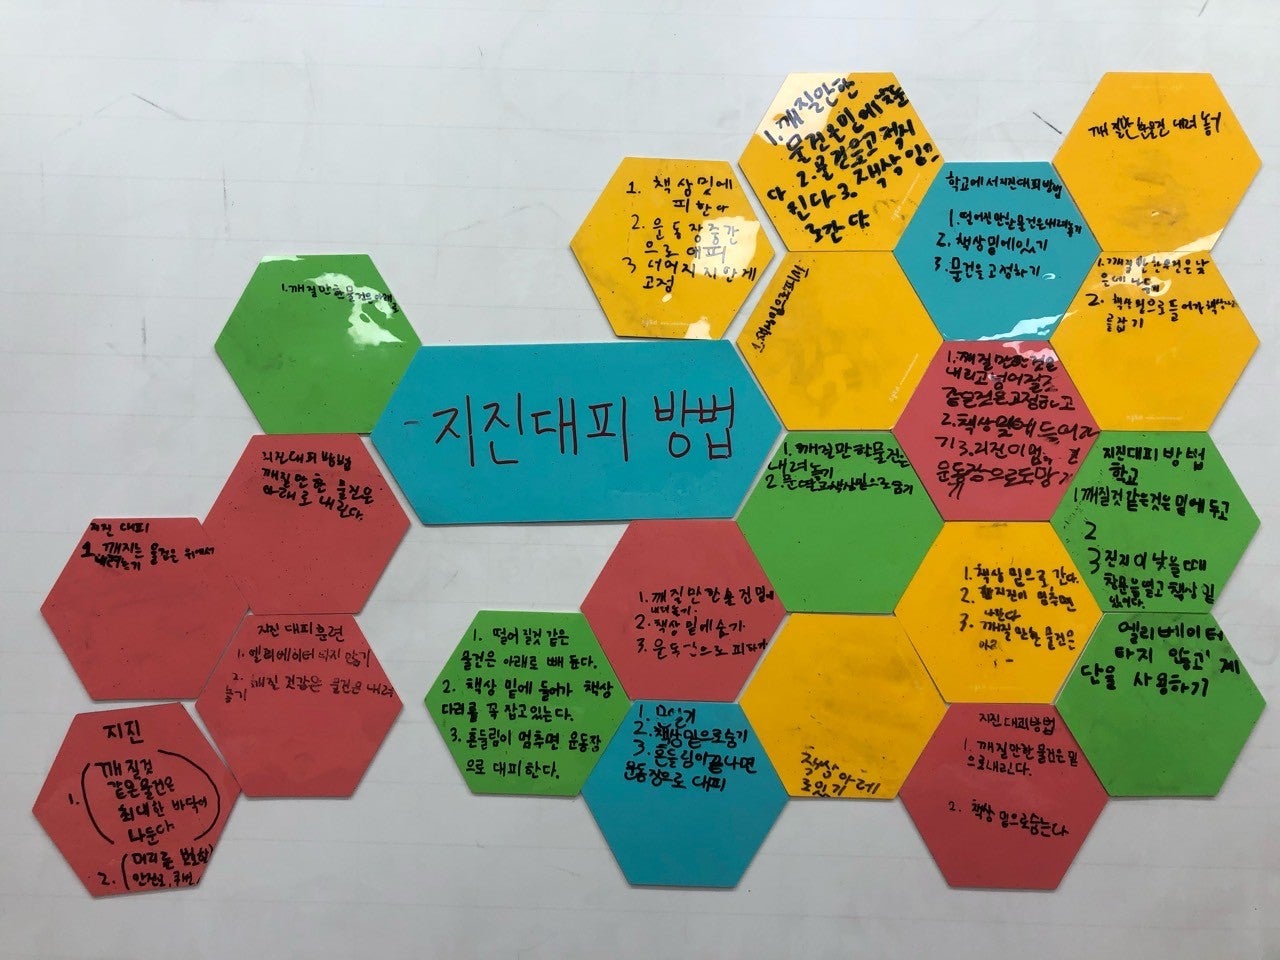 지진대피 방법
1. 깨질만한 물건은 아래로
지진대피 방법
깨질만한 물건은
아래로 내린다.
지진 대피
1. 깨지는 물건은 위에서
내려놓기
지진 대피훈련
1. 엘리베이터 타지 않기
2. 깨진 것같은 물건은 내려
놓기
지진
1. 깨질것
같은물건은
최대한 바닥에
나둔다
2. 머리를 보호할
안전모,
1. 책상밑에
피한다
2. 운동장중간
으로 대피
3 너머지지안게
고정
1. 깨질만한
물건은밑에
2. 물건을고정시
킨다 3. 책상
로간다
학교에서지진대피방법
1. 떨어질만한물건은내려놓기
2. 책상밑에있기
3. 물건을고정하기
깨질만한물건 내려놓기
1. 책상밑으로피하기
1. 깨질만한물건은낮
은데
2. 책상밑으로들어가책상
를잡기
1. 깨질만한것을
내리고넘어질것
같은것은고정하고
2. 책상밑에들어가
기 3. 지진이멈
운동장으로도망가
1. 깨질만한물건은
내려놓기
2. 문열고책상밑으로숨기
지진대피방법
학교
1. 깨질것같은것은밑에두고
2
3 진지이낮을때
창문을열고책상밑
있는다.
1. 깨질만한물건밑에
내려놓기.
2. 책상밑에숨기
3. 운동장으로피하기
1. 책상밑으로간다.
2. 지진이 멈추면
나간다
3. 깨질만한물건은
아래
1. 떨어질것같은
물건은 아래로 빼둔다.
2. 책상 밑에 들어가 책상
다리를 꼭 잡고있는다.
3. 흔들림이 멈추면 운동장
으로 대피한다.
2. 책상밑으로숨기
3. 흔들림이끝나면
운동장으로 대피
책상아레
로있기
지진대피방법
1. 깨질만한물건은밑
으로내린다.
2. 책상밑으로숨는다
엘리베이터
타지 않고 계
단을 사용하기